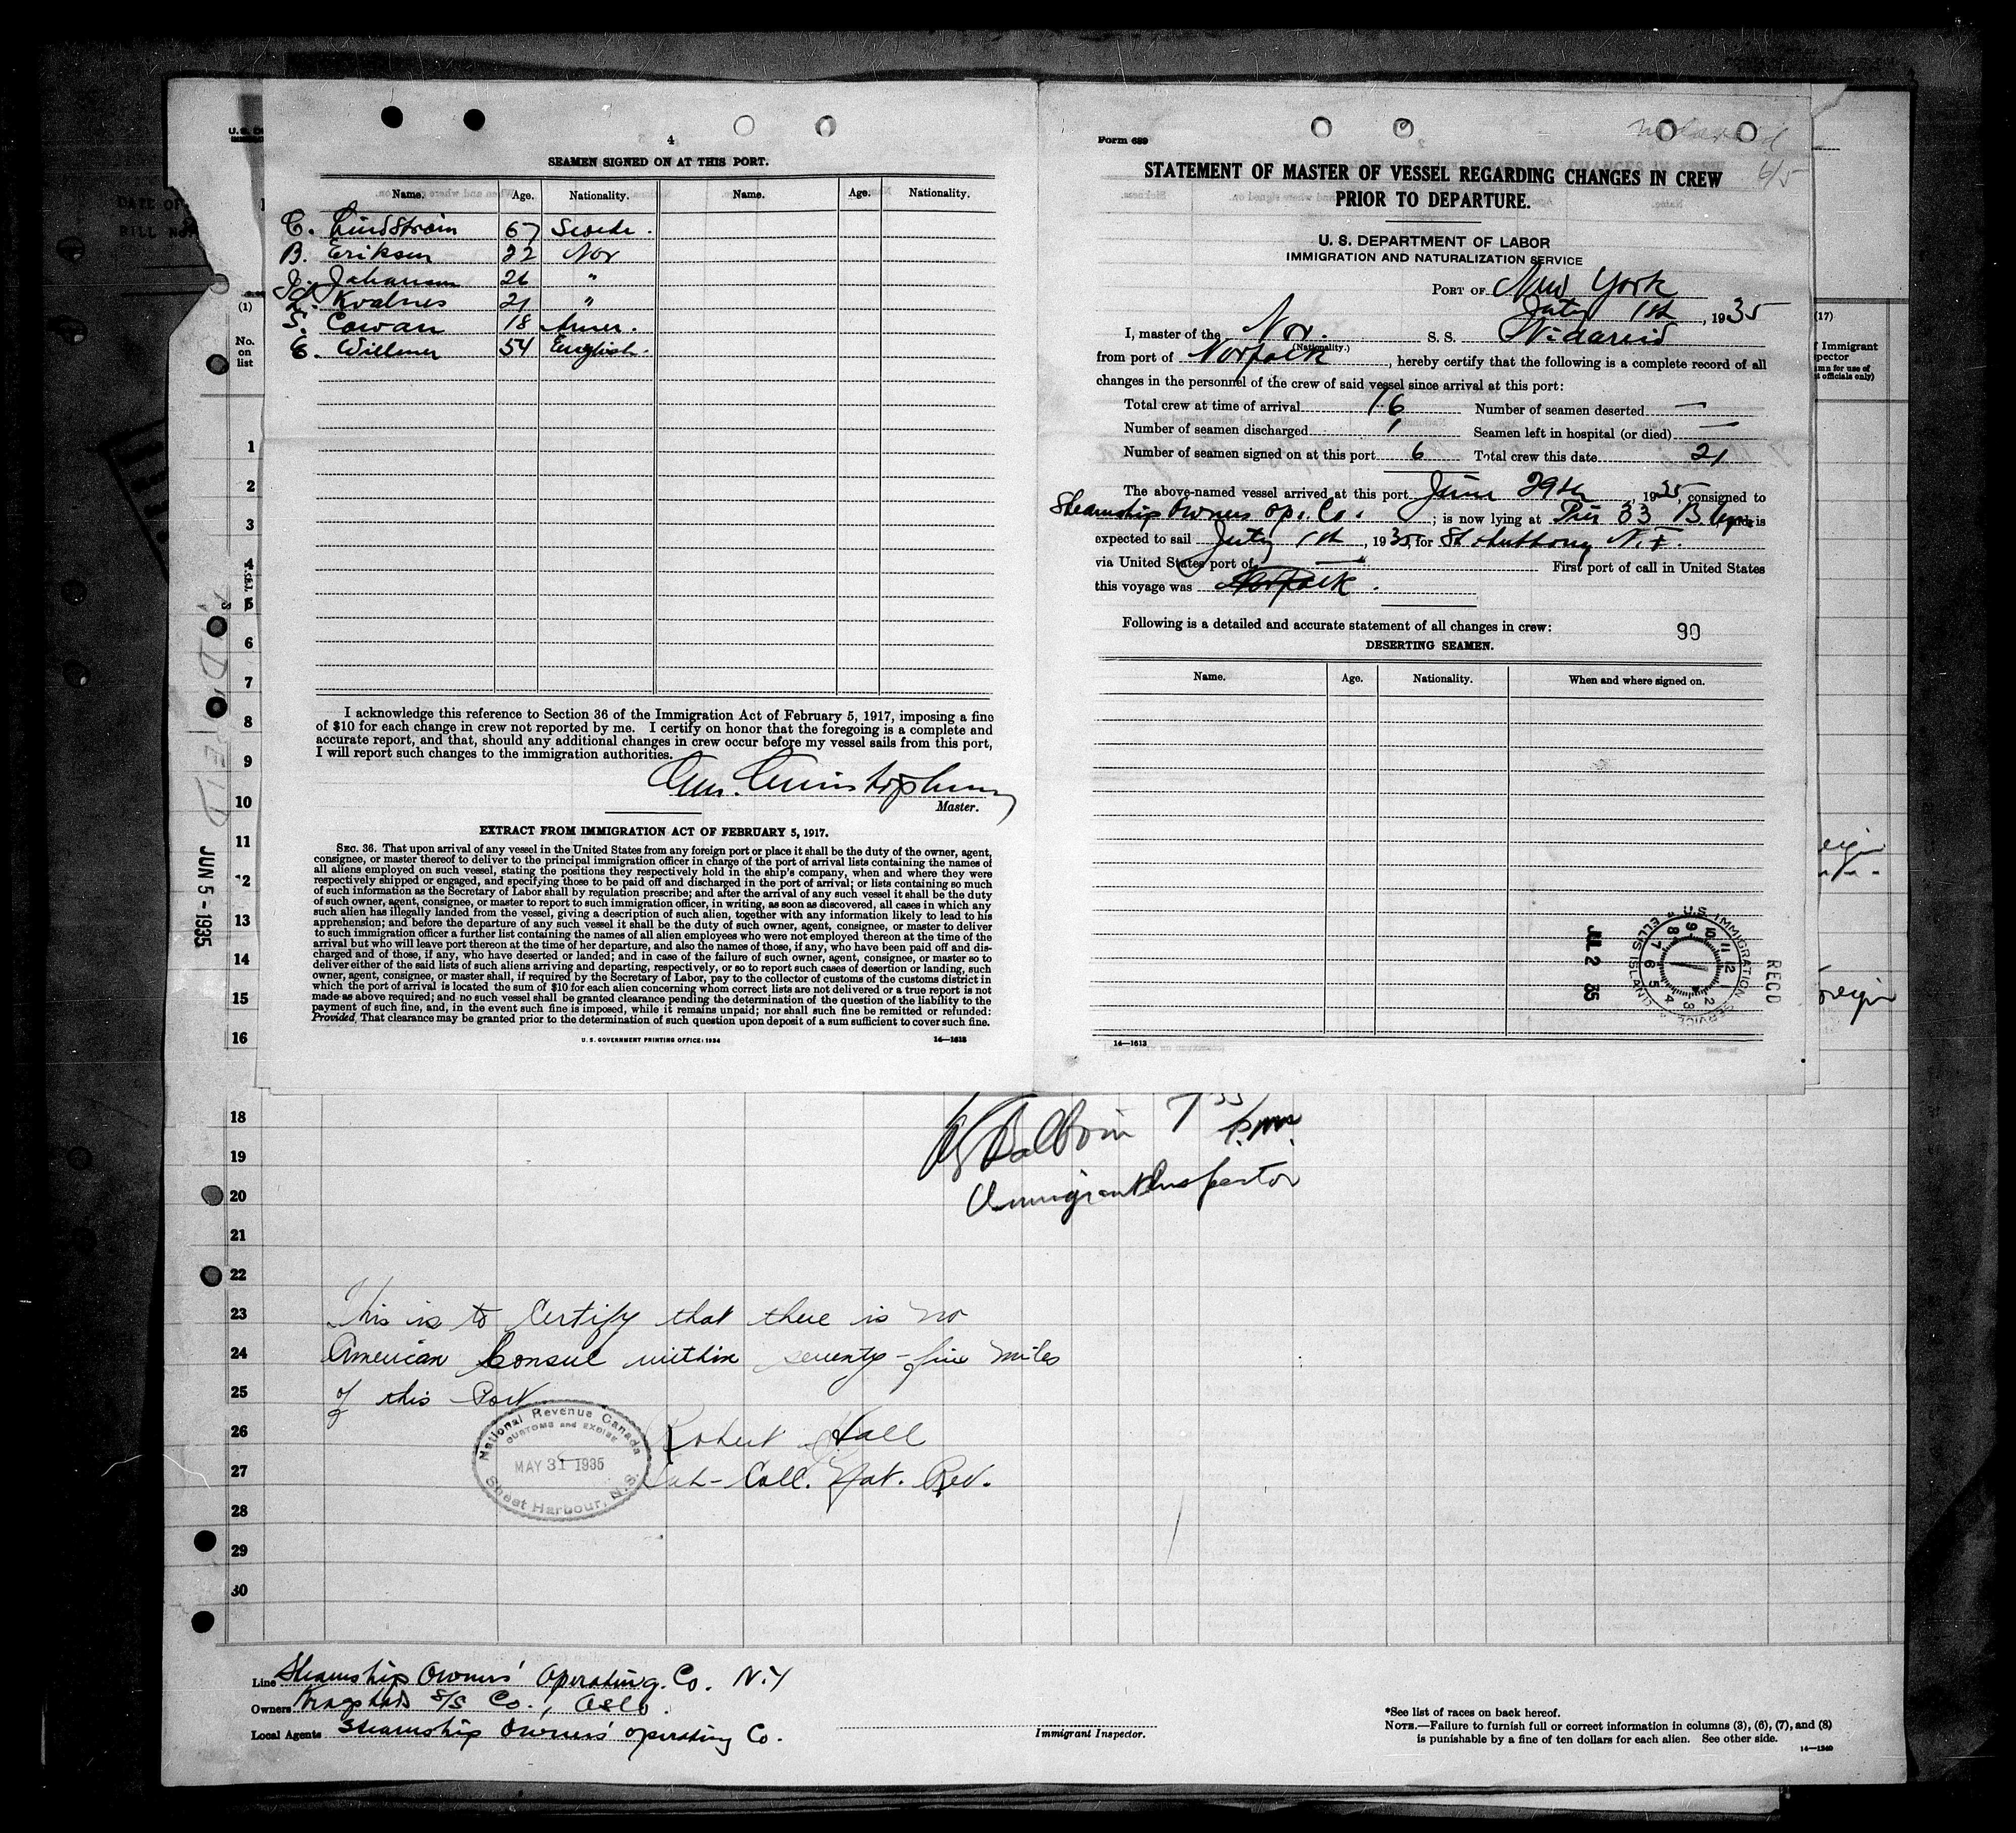 4
SEAMEN SIGNED ON AT THIS PORT.
Name. Age. Nationality. Name. Age. Nationality.
C. Lindstrom 67 Swede.
B. Eriksen 22 Nor
J. Johansen 26 "
Kvalnes 21 "
Cowan 18 Amer.
E. Willmer 54 English.
I acknowledge this reference to Section 36 of the Immigration Act of February 5, 1917, imposing a fine
of $10 for each change in crew not reported by me. I certify on honor that the foregoing is a complete and
accurate report, and that, should any additional changes in crew occur before my vessel sails from this port,
I will report such changes to the immigration authorities.
Master.
EXTRACT FROM IMMIGRATION ACT OF FEBRUARY 5, 1917.
SEC. 36. That upon arrival of any vessel in the United States from any foreign port or place it shall be the duty of the owner, agent,
consignee, or master thereof to deliver to the principal immigration officer in charge of the port of arrival lists containing the names of
all aliens employed on such vessel, stating the positions they respectively hold in the ship's company, when and where they were
respectively shipped or engaged, and specifying those to be paid off and discharged in the port of arrival; or lists containing so much
of such information as the Secretary of Labor shall by regulation prescribe; and after the arrival of any such vessel it shall be the duty
of such owner, agent, consignee, or master to report to such immigration officer, in writing, as soon as discovered, all cases in which any
such alien has illegally landed from the vessel, giving a description of such alien, together with any information likely to lead to his
apprehension; and before the departure of any such vessel it shall be the duty of such owner, agent, consignee, or master to deliver
to such immigration officer a further list containing the names of all alien employees who were not employed thereon at the time of the
arrival but who will leave port thereon at the time of her departure, and also the names of those, if any, who have been paid off and dis-
charged and of those, if any, who have deserted or landed; and in case of the failure of such owner, agent, consignee, or master so to
deliver either of the said lists of such aliens arriving and departing, respectively, or so to report such cases of desertion or landing, such
owner, agent, consignee, or master shall, if required by the Secretary of Labor, pay to the collector of customs of the customs district in
which the port of arrival is located the sum of $10 for each alien concerning whom correct lists are not delivered or a true report is not
made as above required; and no such vessel shall be granted clearance pending the determination of the question of the liability to the
payment of such fine, and, in the event such fine is imposed, while it remains unpaid; nor shall such fine be remitted or refunded:
Provided, That clearance may be granted prior to the determination of such question upon deposit of a sum sufficient to cover such fine.
U. S. GOVERNMENT PRINTING OFFICE: 1934 14—1613
Form 689
6/5
STATEMENT OF MASTER OF VESSEL REGARDING CHANGES IN CREW
PRIOR TO DEPARTURE.
U. S. DEPARTMENT OF LABOR
IMMIGRATION AND NATURALIZATION SERVICE
PORT OF New York
July 1st, 1935
I, master of the Nor. S. S. Nidareid
(Nationality.)
from port of Norfolk, hereby certify that the following is a complete record of all
changes in the personnel of the crew of said vessel since arrival at this port:
Total crew at time of arrival 16 Number of seamen deserted —
Number of seamen discharged 1 Seamen left in hospital (or died) —
Number of seamen signed on at this port 6 Total crew this date 21
The above-named vessel arrived at this port June 29th, 1935, consigned to
Steamship Owners Op. Co.; is now lying at Pier 33 B and is
expected to sail July 1st, 1935, for St. Anthony N.F.
via United States port of — First port of call in United States
this voyage was Norfolk.
Following is a detailed and accurate statement of all changes in crew:
90
DESERTING SEAMEN.
Name. Age. Nationality. When and where signed on.
RECD
U.S. IMMIGRATION SERVICE ELLIS ISLAND
JUL 2 35
14—1613
DATE OF
BILL NO.
(1)
No.
on
list
1
2
3
4
5
6
7
8
9
10
11
12
13
14
15
16
JUN 5 - 1935
(17)
Immigrant
spector
officials only)
18
19
20
21
22
23
24
25
26
27
28
29
30
Baldwin 7 35 p.m.
Immigrant Inspector
This is to Certify that there is no
American Consul within seventy-five miles
of this Port
Robert Hall
Sub-Coll. Nat. Rev.
National Revenue Canada
CUSTOMS and EXCISE
MAY 31 1935
Sheet Harbour, N.S.
Line Steamship Owners' Operating. Co. N.Y
Owners S/S Co., Oslo.
Local Agents Steamship Owners' operating Co.
Immigrant Inspector.
*See list of races on back hereof.
NOTE.—Failure to furnish full or correct information in columns (3), (6), (7), and (8)
is punishable by a fine of ten dollars for each alien. See other side.
14—1240